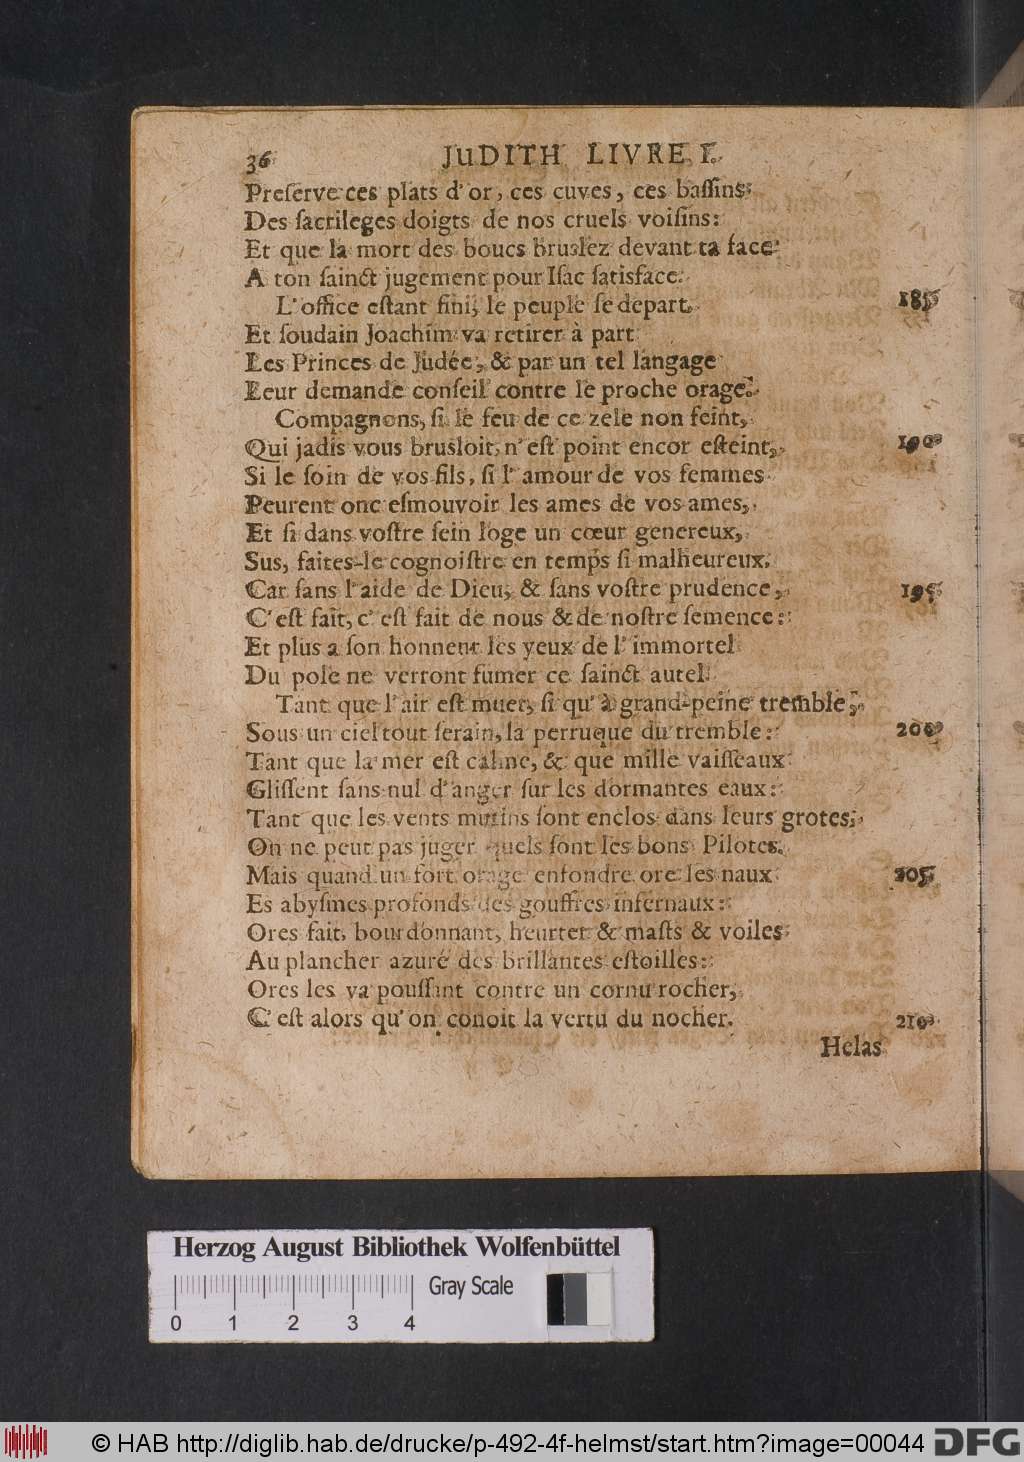 36 JUDITH LIVRE I.
Preſerve ces plats d'or, ces cuves, ces baſſins
Des ſacrileges doigts de nos cruels voiſins:
Et que la mort des boucs bruslez devant ta face
A ton ſainct jugement pour Iſac ſatisface.
L'office eſtant fini, le peuple ſe depart, 185
Et ſoudain Joachim va retirer à part
Les Princes de Judée, & par un tel langage
Leur demande conſeil contre le proche orage.
Compagnons, ſi le feu de ce zele non feint,
Qui jadis vous brusloit, n'eſt point encor eſteint, 190
Si le ſoin de vos fils, ſi l'amour de vos femmes
Peurent onc eſmouvoir les ames de vos ames,
Et ſi dans voſtre ſein loge un cœur genereux,
Sus, faites-le cognoiſtre en temps ſi malheureux.
Car ſans l'aide de Dieu, & ſans voſtre prudence, 195
C'eſt fait, c'eſt fait de nous & de noſtre ſemence:
Et plus a ſon honneur les yeux de l'immortel
Du pole ne verront fumer ce ſainct autel.
Tant que l'air eſt muet, ſi qu'à grand-peine tremble,
Sous un ciel tout ſerain, la perruque du tremble: 200
Tant que la mer eſt calme, & que mille vaiſſeaux
Gliſſent ſans nul d'anger ſur les dormantes eaux:
Tant que les vents mutins ſont enclos dans leurs grotes,
On ne peut pas juger quels ſont les bons Pilotes.
Mais quand un fort orage enfondre ore les naux 205
Es abyſmes profonds des gouffres infernaux:
Ores fait, bourdonnant, heurter & maſts & voiles
Au plancher azuré des brillantes eſtoilles:
Ores les va pouſſant contre un cornu rocher,
C'eſt alors qu'on conoit la vertu du nocher. 210
Helas
Herzog August Bibliothek Wolfenbüttel
Gray Scale
0 1 2 3 4
© HAB http://diglib.hab.de/drucke/p-492-4f-helmst/start.htm?image=00044 DFG